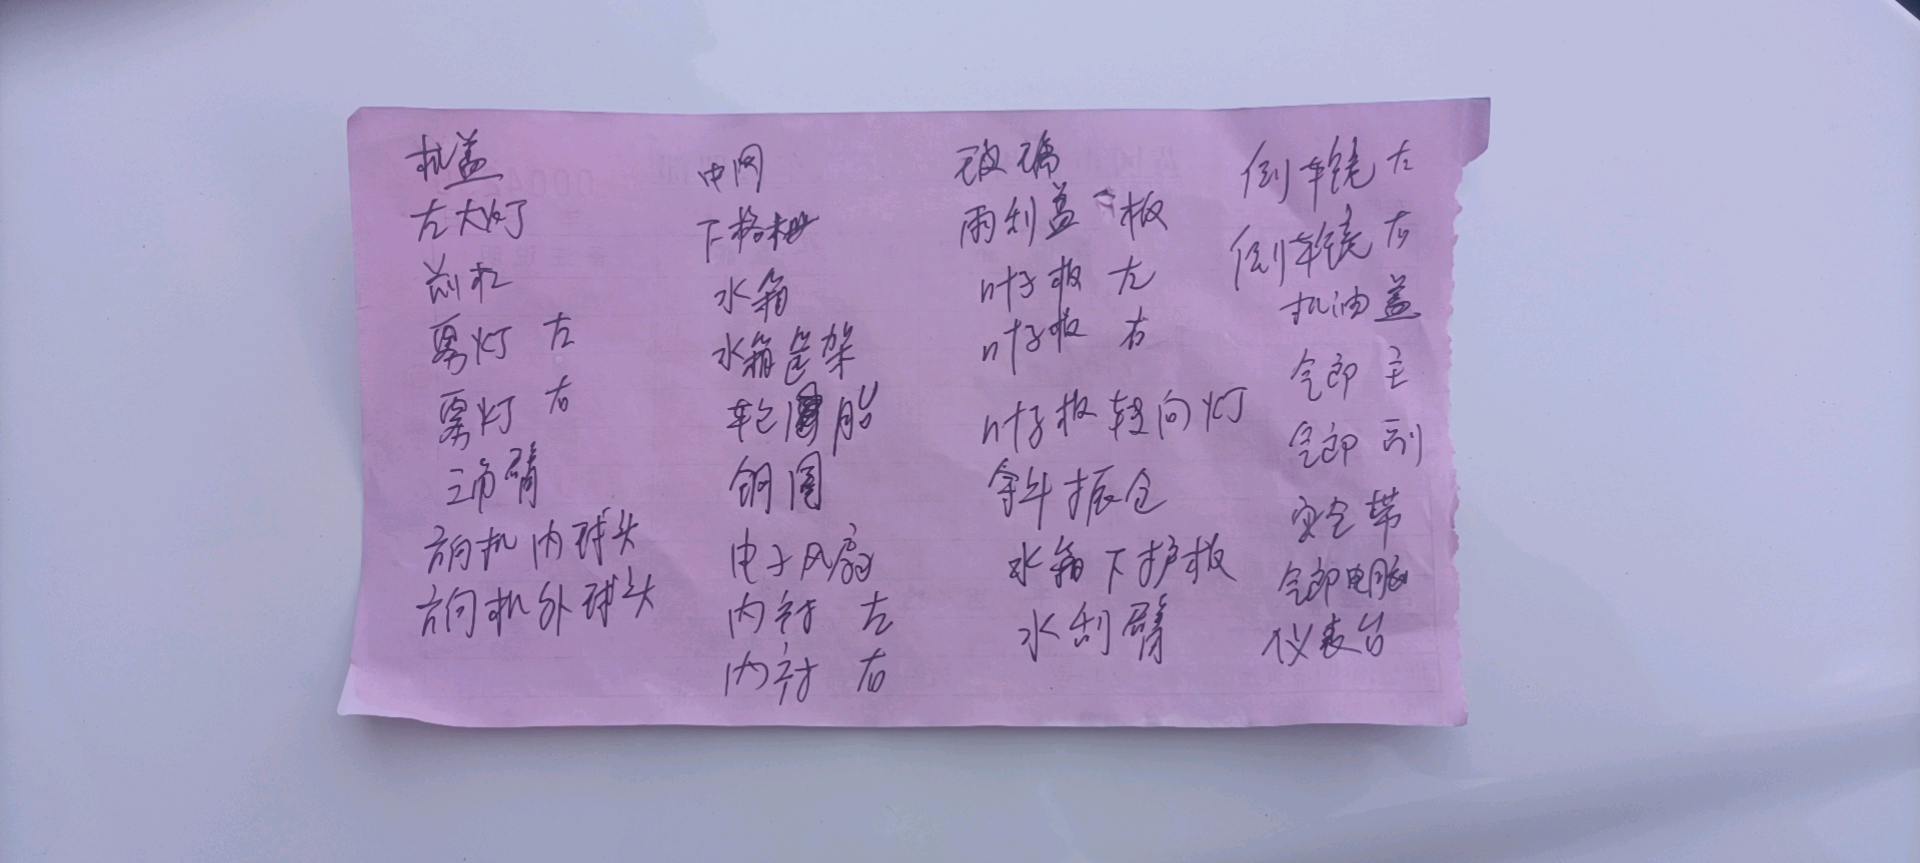 机盖
左大灯
前杠
雾灯 左
雾灯 右
三角臂
方向机内球头
方向机外球头
中网
下格栅
水箱
水箱笸架
轮胎
钢圈
电子风扇
内衬 左
内衬 右
玻璃
雨刮盖板
叶子板 左
叶子板 右
叶子板转向灯
水箱下护板
水刮臂
倒车镜 左
倒车镜 右
机油盖
气郎 主
气郎 副
安全带
气郎电脑
仪表台